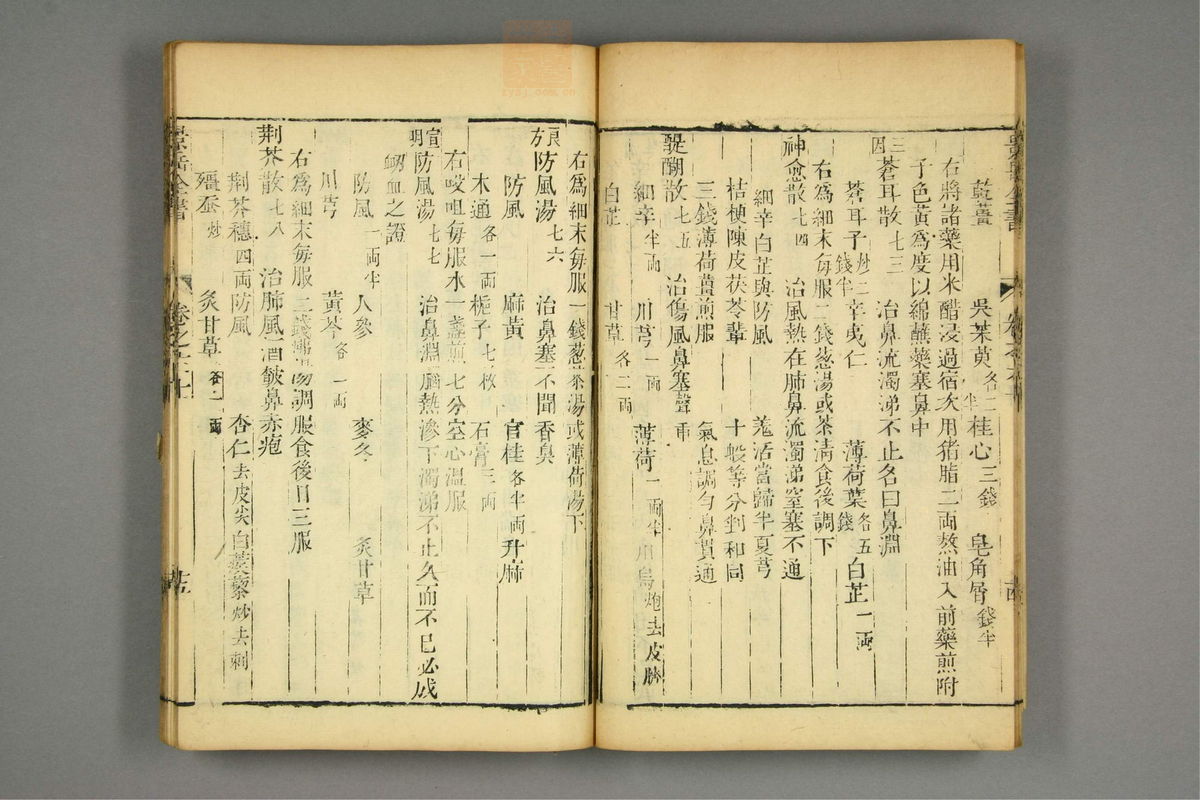 乾薑 吳茱萸各二錢半 桂心三錢 皂角屑錢半
右將諸藥用米醋浸過宿次用猪脂二両熬油入前藥煎附
子色黃爲度以綿蘸藥塞鼻中
三因蒼耳散七三 治鼻流濁涕不止名曰鼻淵
蒼耳子炒二錢半 辛夷仁 薄荷葉各五錢 白芷一両
右為細末每服二錢葱湯或茶清食後調下
神愈散七四 治風熱在肺鼻流濁涕窒塞不通
細辛白芷與防風 羗活當歸半夏芎
桔梗陳皮茯苓輩 十般等分剉和同
三錢薄荷薑煎服 氣息調勻鼻貫通
醍醐散七五 治傷風鼻塞聲重
細辛半両 川芎一両 薄荷一両半 川烏炮去皮臍
白芷 甘草各二両
右為細末每服一錢葱茶湯或薄荷湯下
良方防風湯七六 治鼻塞不聞香臭
防風 麻黃 官桂各半両 升麻
木通各一両 梔子七枚 石膏三両
右㕮咀每服水一盞煎七分空心温服
宣明防風湯七七 治鼻淵腦熱滲下濁涕不止久而不已必成
衂血之證
防風一両半 人參 麥冬 炙甘草
川芎 黃芩各一両
右為細末每服二錢沸湯調服食後日三服
荆芥散七八 治肺風酒皶鼻赤疱
荆芥穗四両 防風 杏仁去皮尖 白蒺藜炒去刺
殭蚕炒 炙甘草各一両
景岳全書